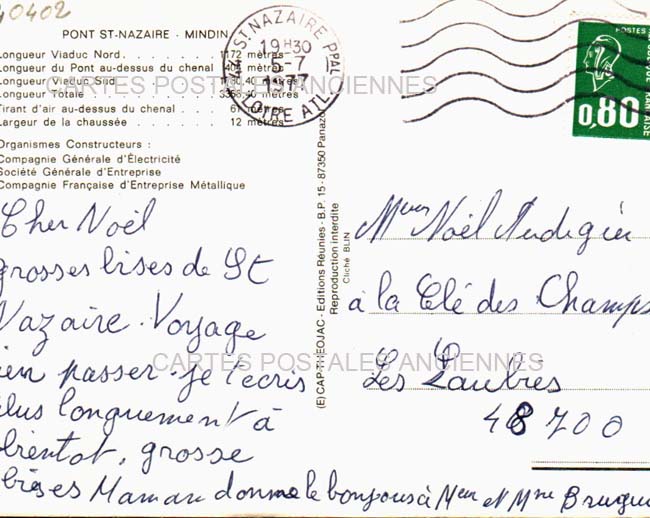 40402
PONT ST-NAZAIRE - MINDIN
Longueur Viaduc Nord . . . . . . . 1172 mètres
Longueur du Pont au-dessus du chenal 404 mètres
Longueur Viaduc Sud
Longueur Totale . . . . . . . 3356,40 mètres
Tirant d'air au-dessus du chenal . . . 61 mètres
Largeur de la chaussée . . . . . . 12 mètres
Organismes Constructeurs :
Compagnie Générale d'Électricité
Société Générale d'Entreprise
Compagnie Française d'Entreprise Métallique
44 ST NAZAIRE PPAL
19H30
5-7
1977
LOIRE ATL.
POSTES
0,80
CARTES POSTALES ANCIENNES
Cher Noël
grosses bises de St
Nazaire. Voyage
ien passer. je t'ecris
plus longuement à
bientot, grosse
bises Maman donne le bonjous à Meur et Mme
(E) CAP-THEOJAC - Editions Réunies - B.P. 15 - 87350 Panazol
Reproduction interdite
Cliché BLIN
Noël
à la Clé des Champs
Les
48700
CARTES POSTALES ANCIENNES